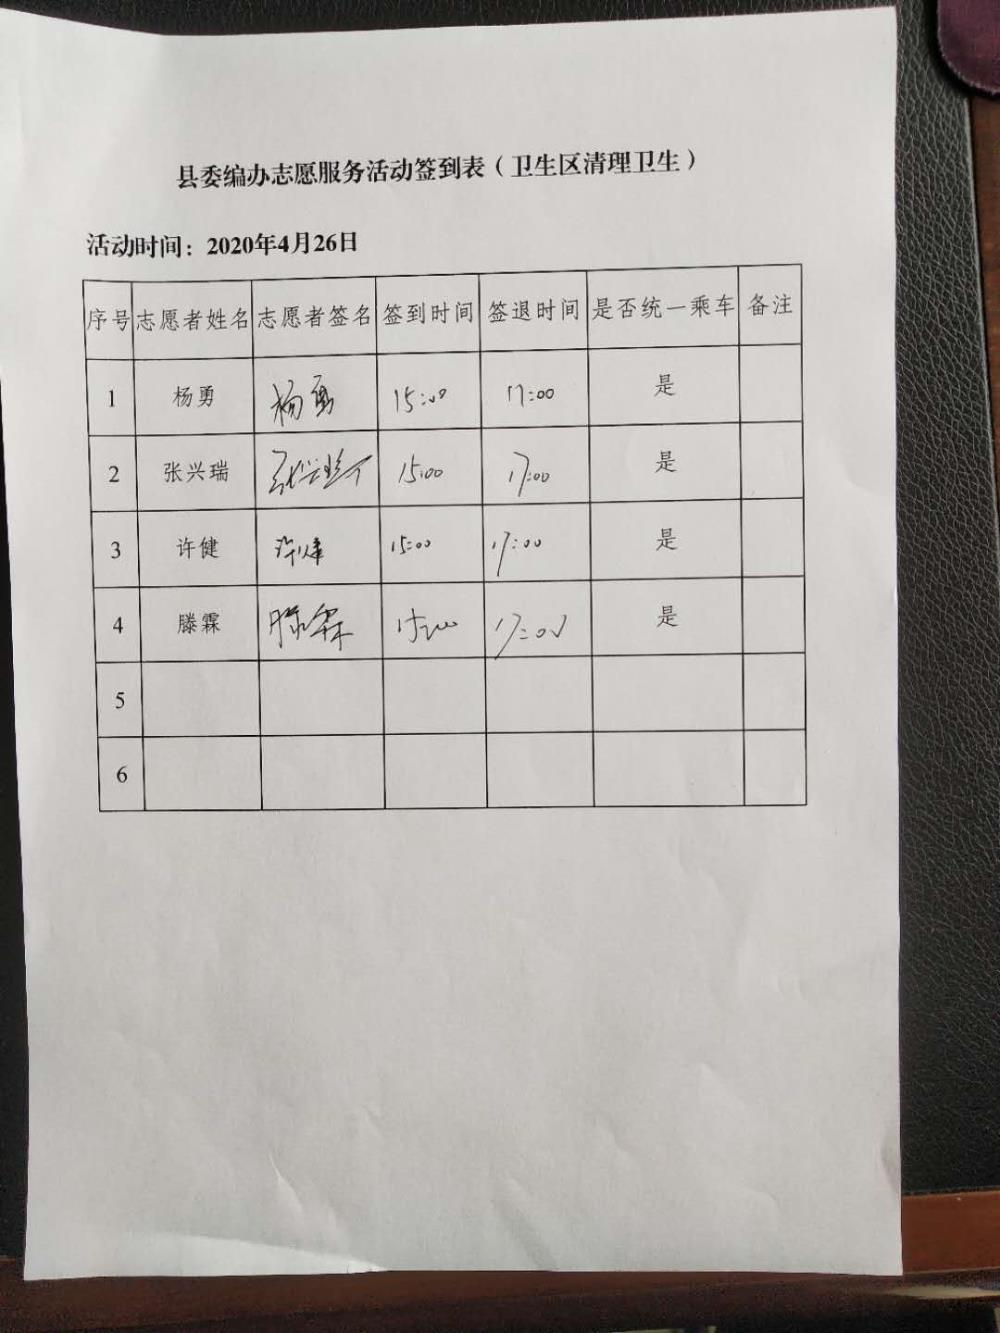 县委编办志愿服务活动签到表（卫生区清理卫生）
活动时间：2020年4月26日
序号 志愿者姓名 志愿者签名 签到时间 签退时间 是否统一乘车 备注
1 杨勇 杨勇 15:00 17:00 是
2 张兴瑞 张兴瑞 15:00 17:00 是
3 许健 许健 15:00 17:00 是
4 滕霖 滕霖 15:00 17:00 是
5
6